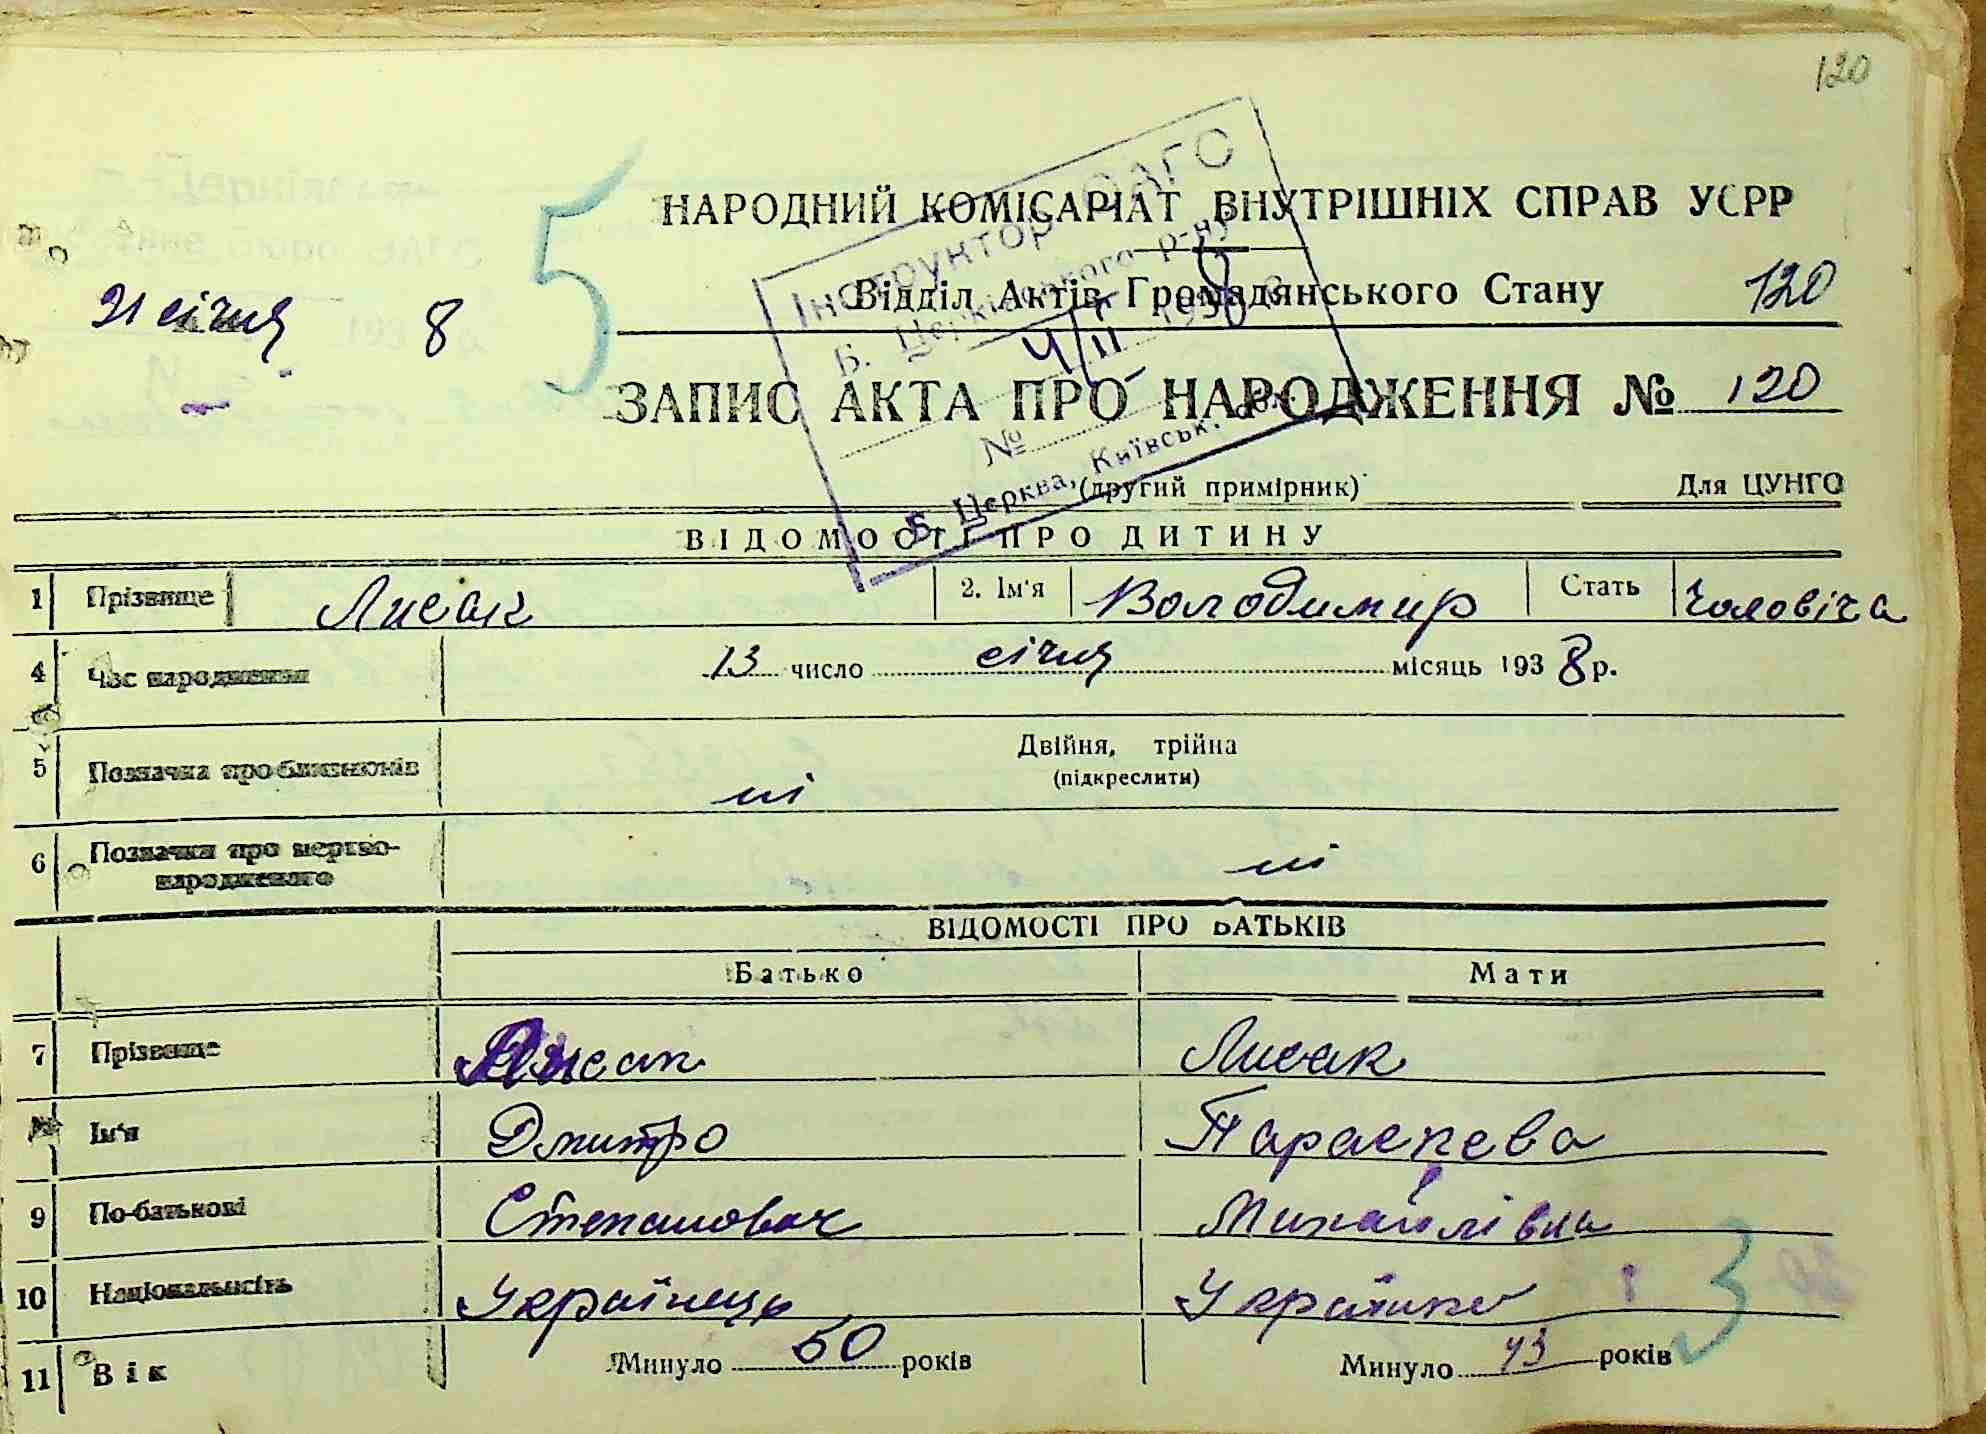 120
5
НАРОДНИЙ КОМІСАРІАТ ВНУТРІШНІХ СПРАВ УСРР
Інструктор ОАГС
Б. Церківського р-ну
4/II 1938
№
Б. Церква, Київськ. обл.
21 січня 8
Відділ Актів Громадянського Стану 120
ЗАПИС АКТА ПРО НАРОДЖЕННЯ № 120
(другий примірник) Для ЦУНГО
ВІДОМОСТІ ПРО ДИТИНУ
1 Прізвище Лисак 2. Ім'я Володимир Стать чоловіча
4 Час народження 13 число січня місяць 1938 р.
5 Позначка про близнюків Двійня, трійня
(підкреслити)
ні
6 Позначки про мертво-
народженого ні
ВІДОМОСТІ ПРО БАТЬКІВ
Батько Мати
7 Прізвище Лисак Лисак
Ім'я Дмитро Параскева
9 По-батькові Степанович Михайлівна
10 Національність Українець Українка
3
11 Вік Минуло 50 років Минуло 43 років